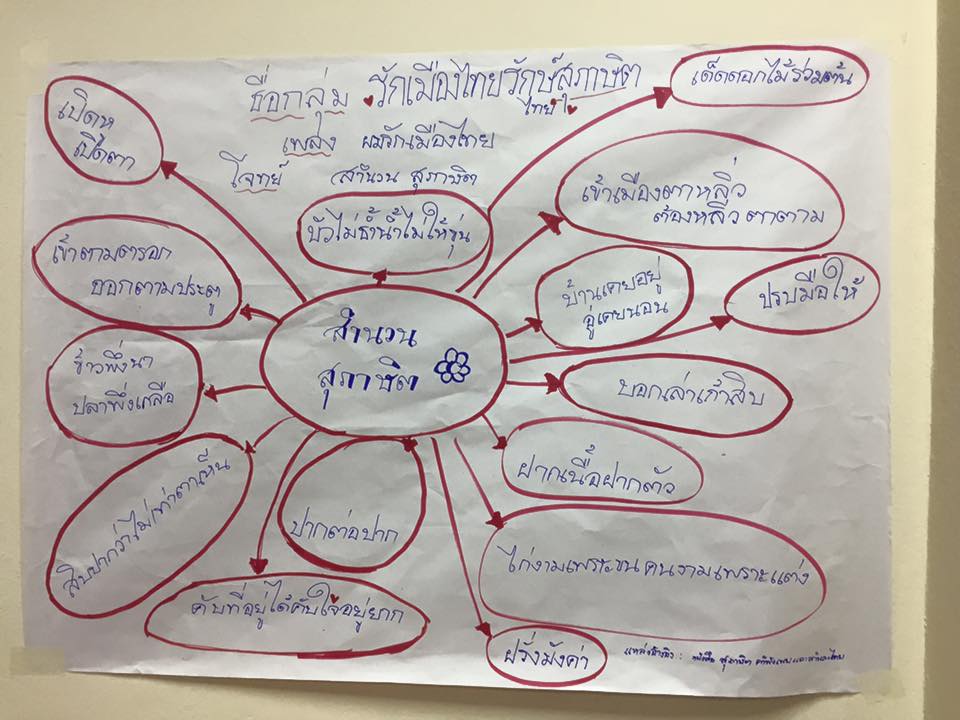 ชื่อกลุ่ม รักเมืองไทยรักษ์สุภาษิต
ไทย
เพลง ผมรักเมืองไทย
โจทย์ สำนวน สุภาษิต
เด็ดดอกไม้ร่วมต้น
เปิดหู
เปิดตา
เข้าเมืองตาหลิ่ว
ต้องหลิ่วตาตาม
บัวไม่ช้ำน้ำไม่ให้ขุ่น
เข้าตามตรอก
ออกตามประตู
บ้านเคยอยู่
อู่เคยนอน
ปรบมือให้
สำนวน
สุภาษิต
ข้าวพึ่งนา
ปลาพึ่งเกลือ
บอกเล่าเก้าสิบ
ฝากเนื้อฝากตัว
สิบปากว่าไม่เท่าตาเห็น
ปากต่อปาก
ไก่งามเพราะขน คนงามเพราะแต่ง
คับที่อยู่ได้คับใจอยู่ยาก
ฝรั่งมังค่า
แหล่งอ้างอิง : หนังสือ สุภาษิต